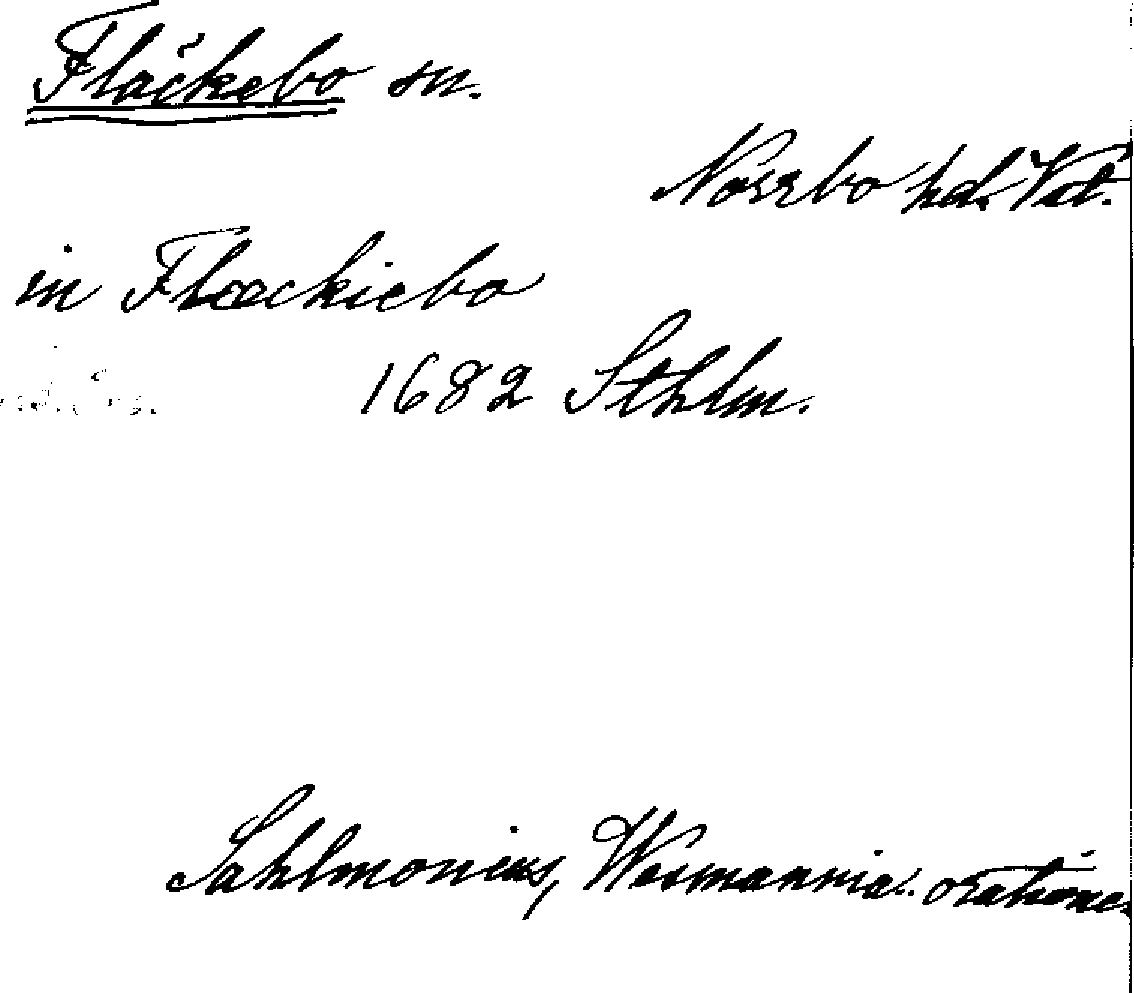 Fläckebo sn.
Norrbo hd. Vst.
in Flæckiebo
1682 Sthlm.
Sahlmonius, Wesmannia.. oratione